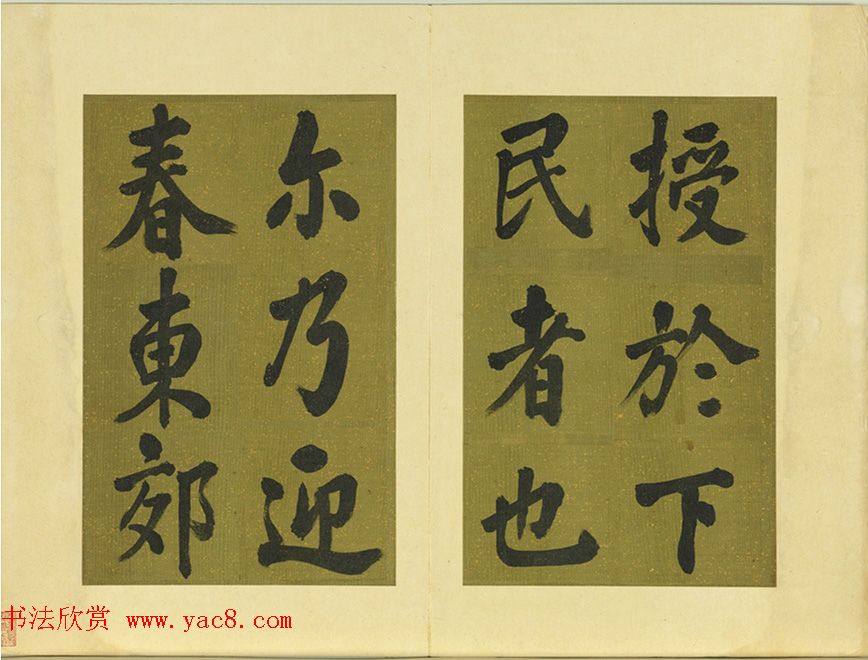 授於下
民者也
尔乃迎
春東郊
书法欣赏 www.yac8.com